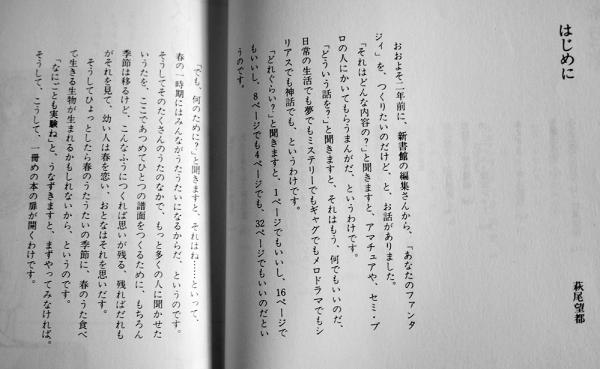 はじめに
萩尾望都
おおよそ二年前に、新書館の編集さんから、「あなたのファンタ
ジィ」を、つくりたいのだけど、と、お話がありました。
「それはどんな内容の？」と聞きますと、アマチュアや、セミ・プ
ロの人にかいてもらうまんがだ、というわけです。
「どういう話を？」と聞きますと、それはもう、何でもいいのだ、
日常の生活でも夢でもミステリーでもギャグでもメロドラマでもシ
リアスでも神話でも、というわけです。
「どれぐらい？」と聞きますと、1ページでもいいし、16ページで
もいいし、8ページでも4ページでも、32ページでもいいのだとい
うのです。
「でも、何のために？」と聞きますと、それはね……といって、
春の一時期にはみんながうたうたいになるからだ、というのです。
そうしてそのたくさんのうたのなかで、もっと多くの人に聞かせた
いうたを、ここであつめてひとつの譜面をつくるために、もちろん
季節は移るけど、こんなふうにつくれば思いが残る、残ればだれも
がそれを見て、幼い人は春を恋い、おとなはそれを思いだす。
そうしてひょっとしたら春のうたうたいの季節に、春のうた食べ
て生きる生物が生まれるかもしれないから、というのです。
「なにごとも実験ね」と、うなずきますと、まずやってみなければ。
そうして、こうして、一冊めの本の扉が開くわけです。